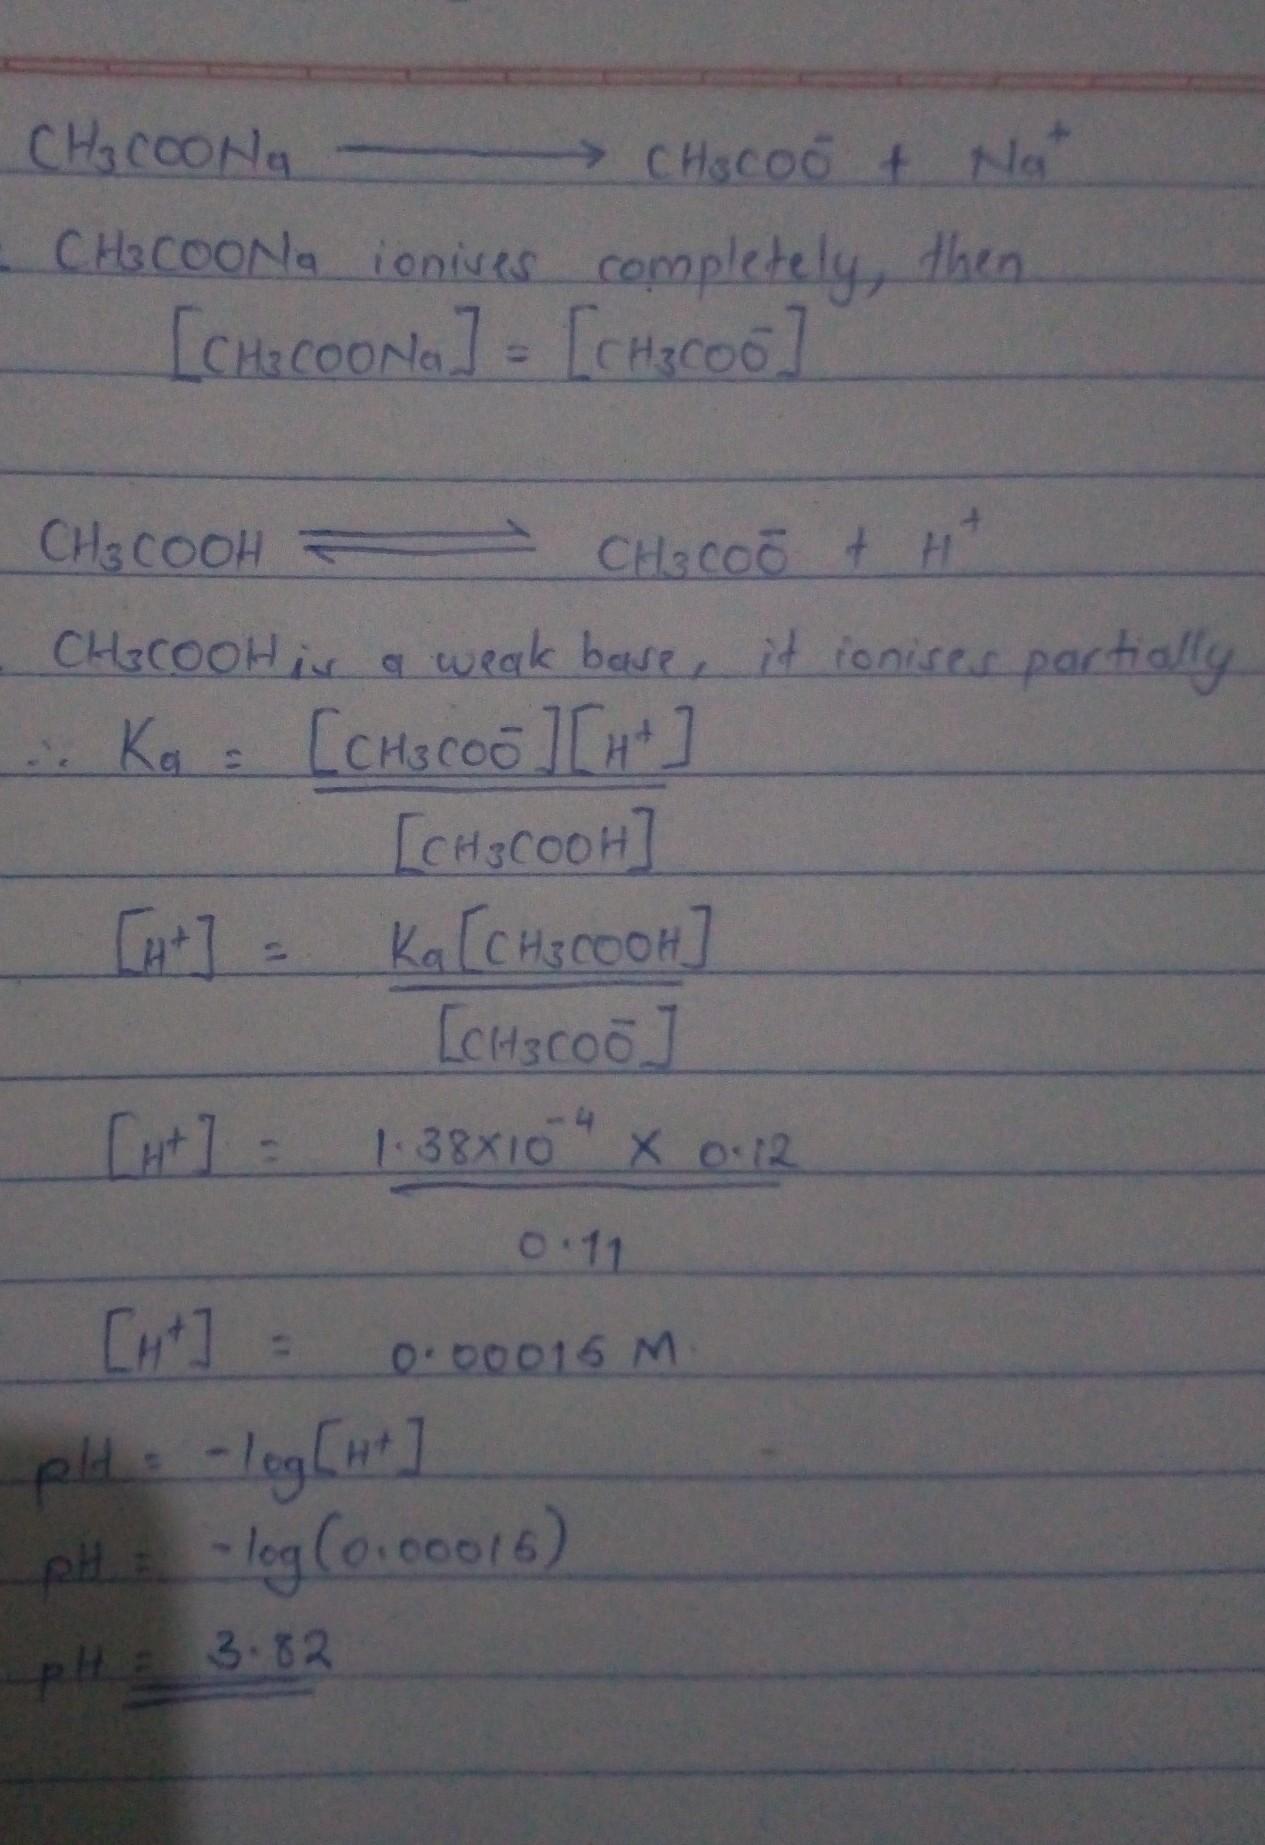 CH₃COONa ⟶ CH₃COO⁻ + Na⁺
CH₃COONa ionises completely, then
[CH₃COONa] = [CH₃COO⁻]
CH₃COOH ⇌ CH₃COO⁻ + H⁺
CH₃COOH is a weak base, it ionises partially
∴ Ka = [CH₃COO⁻][H⁺]
[CH₃COOH]
[H⁺] = Ka[CH₃COOH]
[CH₃COO⁻]
[H⁺] = 1.38×10⁻⁴ × 0.12
0.11
[H⁺] = 0.00015 M
pH = -log[H⁺]
pH = -log(0.00015)
pH = 3.82